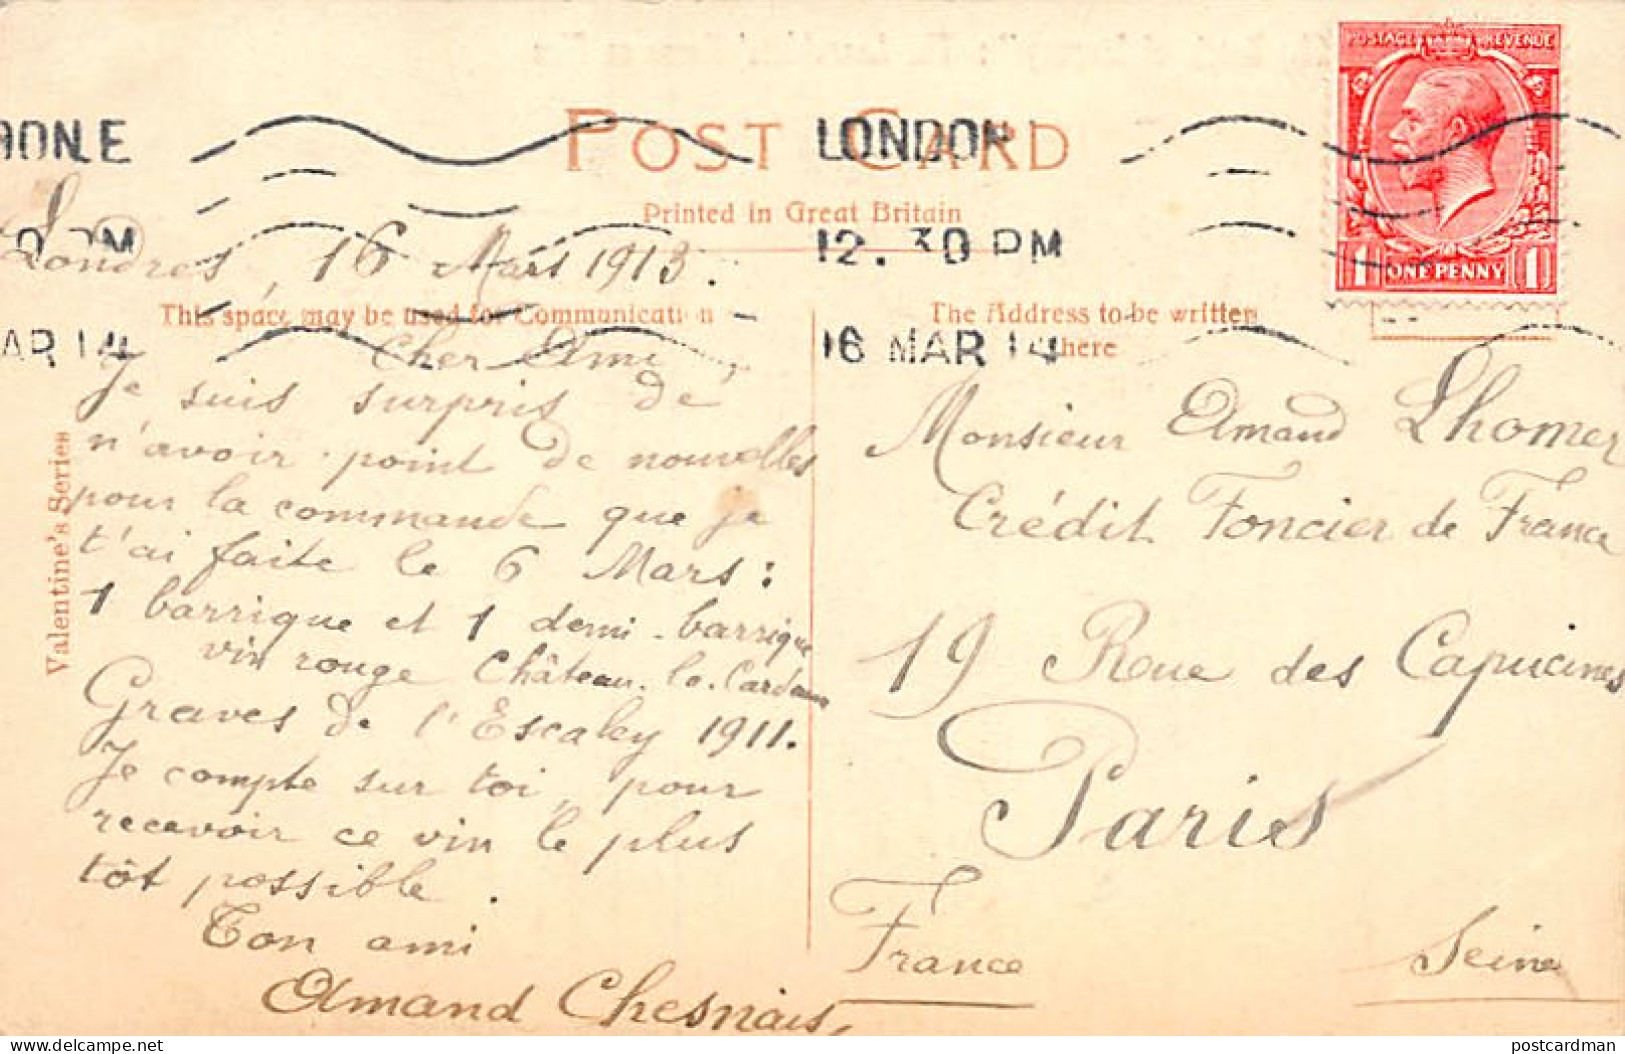 POST CARD
Printed in Great Britain
POSTAGE REVENUE
1 ONE PENNY 1
LONDON
12.30 PM
16 MAR 14
AR 14
Londres, 16 Mars 1913.
This space may be used for Communication
The Address to be written
here
Valentine's Series
Cher Ami,
Je suis surpris de
n'avoir point de nouvelles
pour la commande que je
t'ai faite le 6 Mars :
1 barrique et 1 demi-barrique
vin rouge Château-le-
Graves de l'Escaley 1911.
Je compte sur toi, pour
recevoir ce vin le plus
tôt possible.
Ton ami
Amand Chesnais,
Monsieur Amand Lhomer
Crédit Foncier de France
19 Roue des Capucines
Paris
France
Seine
postcardman